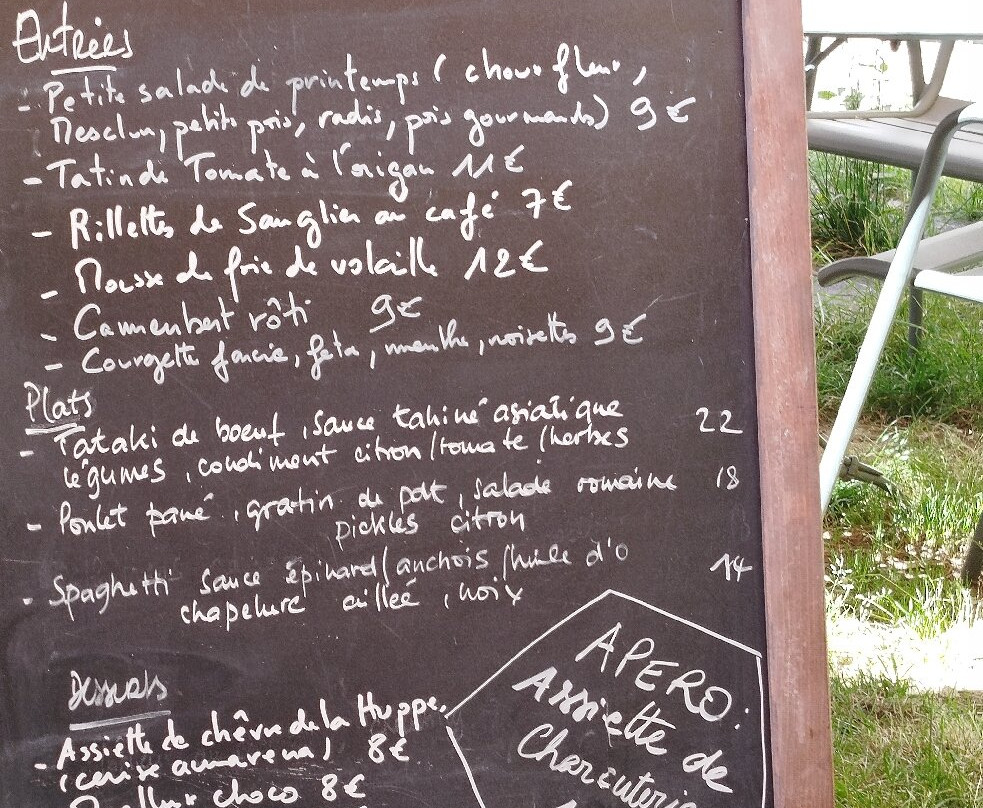 Entrées
- Petite salade de printemps ( choux fleur,
Mesclun, petits pois, radis, pois gourmands) 9 €
- Tatin de Tomate à l'origan 11 €
- Rillettes de Sanglier au café 7 €
- Mousse de foie de volaille 12 €
- Camembert rôti 9 €
- Courgette farcie, feta, menthe, noisettes 9 €
Plats
- Tataki de boeuf, sauce tahiné asiatique 22
légumes, condiment citron/tomate/herbes
- Poulet pané, gratin de pdt, salade romaine 18
pickles citron
- Spaghetti sauce épinard/anchois/huile d'o 14
chapelure aillée, noix
Desserts
- Assiette de chèvre de la Huppe,
(cerise amarena) 8 €
choco 8 €
APERO:
Assiette de
Charcuterie